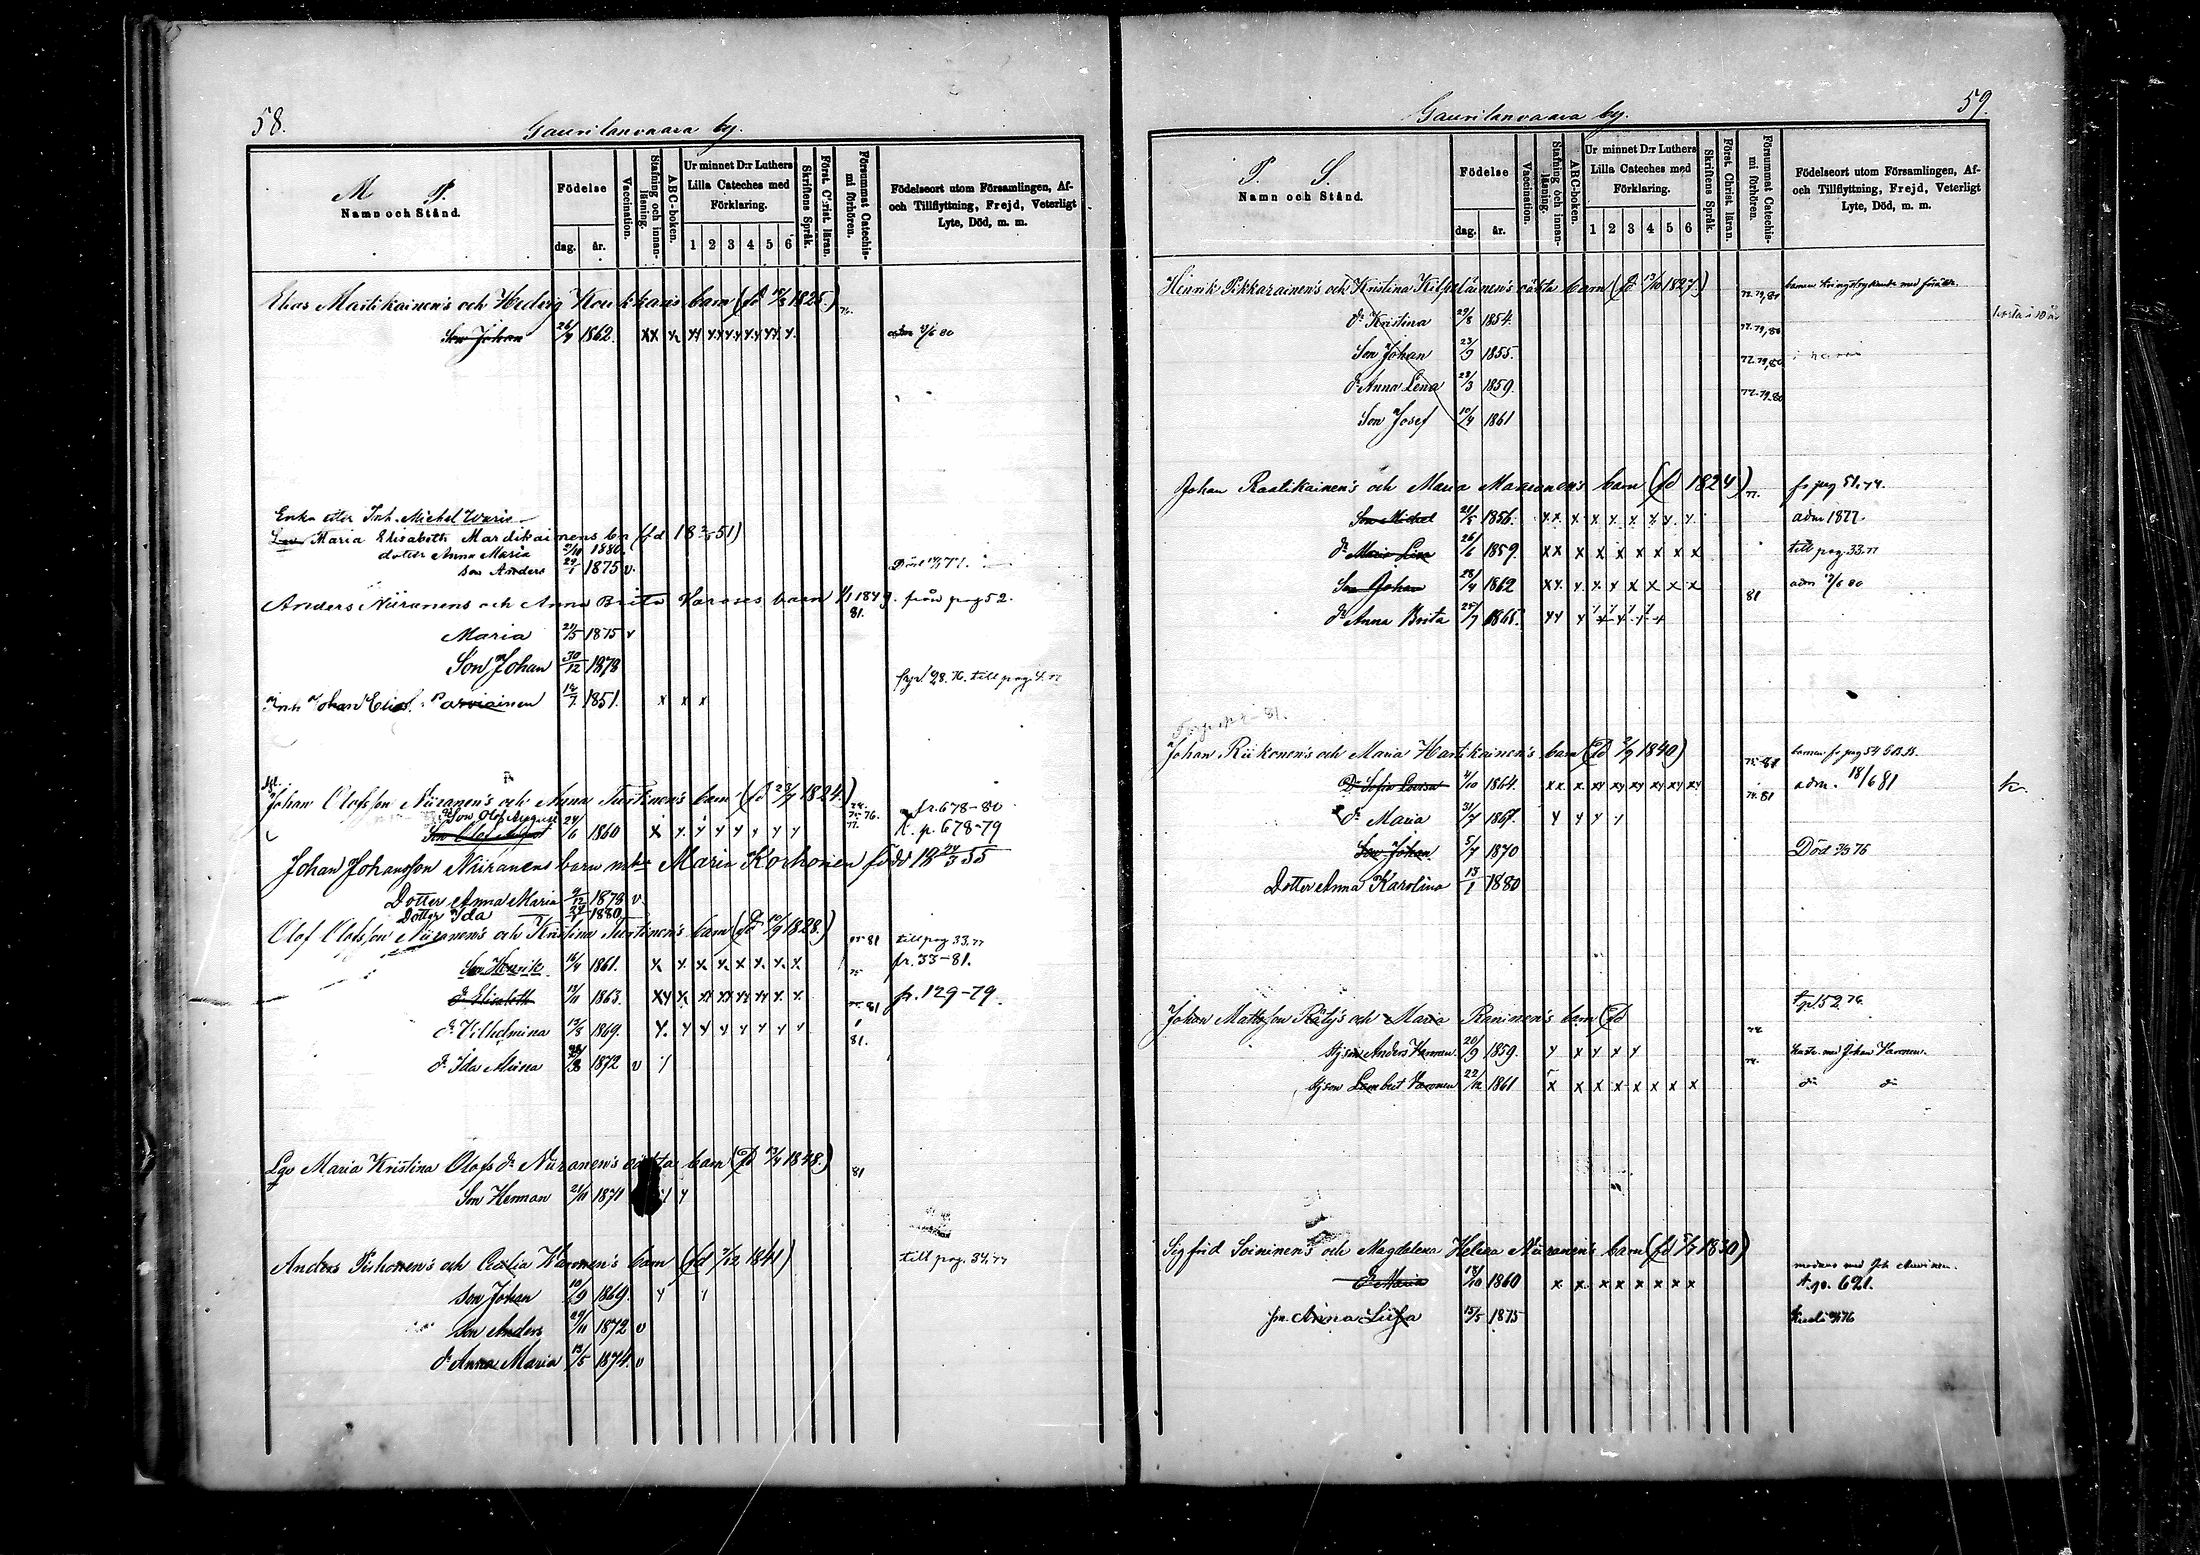 58.
Gaurilanvaara by.
M P.
Namn och Stånd.
Födelse
dag. år.
Vaccination.
Stafning och innan-läsning.
ABC-boken.
Ur minnet D:r Luthers Lilla Cateches med Förklaring.
1 2 3 4 5 6
Skriftens Språk.
Först. Christ. läran.
Försummat Catechis-mi förhören.
Födelseort utom Församlingen, Af- och Tillflyttning, Frejd, Veterligt Lyte, Död, m. m.
Elias Martikainen's och Hedvig Koukkari's barn 1825.)
Son Johan 26/9 1862. xx x xx xx xx xx xx x. 80
Enka efter Inh. Michel
Maria Elisabeth Mardikainens bn
dotter Anna Maria 1880.
son Anders 29/1 1875 v. Död 77.
Anders Niiranens och Anna Brita barn 1849. från pag 52.
81.
Maria 21/5 1875 v
Son Johan 30/12 1878
till pag. 4. 77
Inh Johan Elias. Parviainen 12/7 1851. x x x
Johan Olofsson Niiranen's och Anna Turtinen's barn (fd 1824.) fr. 678-80
Son Olof August 24/6 1860 x x x x x x x x t. p. 678-79
Johan Johansson Niiranens barn m. Maria Korhonen född 18 24/3 55
Dotter Anna Maria 9/12 1878 v
Dotter Ida 1880
Olof Olofsson Niiranen's och Kristina Turtinen's barn (fd 10/9 1828.) 81 till pag 33. 77
Son Henrik 16/4 1861. x x x x x x x x fr. 33-81.
dr Elisabeth 12/11 1863. fr. 129-79.
dr Vilhelmina 12/8 1869. x. x x x x x x x 81.
dr Ida Miina 1872 v
Maria Kristina Olofs dr Niiranen's oäkta barn 1848.) 81
Son Herman 21/11 1871
Anders Piihonen's och Cecilia Varonen's barn (fd 7/12 1841) till pag. 34. 77
Son Johan 10/9 1869.
Son Anders 29/11 1872 v
dr Anna Maria 13/5 1874. v
59.
Gaurilanvaara by.
P. S.
Namn och Stånd.
Födelse
dag. år.
Vaccination.
Stafning och innan-läsning.
ABC-boken.
Ur minnet D:r Luthers Lilla Cateches med Förklaring.
1 2 3 4 5 6
Skriftens Språk.
Först. Christ. läran.
Försummat Catechis-mi förhören.
Födelseort utom Församlingen, Af- och Tillflyttning, Frejd, Veterligt Lyte, Död, m. m.
Henrik Pikkarainen's och Kristina Kilpeläinen's oäkta barn (fd 13/10 1827.) 77. 79, 80 barnen kringstrykande med
dr Kristina 29/8 1854. 77. 79, 80
Son Johan 23/9 1855. 77. 79, 80
dr Anna Lena 28/3 1859. 77. 79. 80
Son Josef 10/4 1861
Johan Raatikainen's och Maria barn (fd 1824) 77. fr pag 51. 74.
Son Michel 21/5 1856. xx x x x x x x x adm 1877
dr Maria Lisa 26/6 1859. xx x x x x x x x till pag. 33. 77
Son Johan 28/4 1862 xx x x x x x x x 81 adm 80
dr Anna Brita 25/7 1865.
Johan Riikonen's och Maria Hartikainen's barn (fd 2/9 1840) 81 barnen fr pag 54
Dr Sofia Lovisa 4/10 1864. adm. 18/6 81
dr Maria 31/7 1867. x x x x
Son Johan 5/7 1870 Död 76
Dotter Anna Karolina 13/1 1880
Johan Mattsson Räty's och Maria Raninen's barn (fd 52. 76.
stjson Anders Varonen 20/9 1859. x x x x x med Johan Varonen.
stjson Lambert Varonen 22/12 1861 x x x x x x x x do do
Sigfrid Soininen's och Magdalena Helena Niiranen's barn (fd 5/7 1830)
dr Maria 18/10 1860 x x x x x x x x t. p. 621.
Anna Liisa 15/5 1875